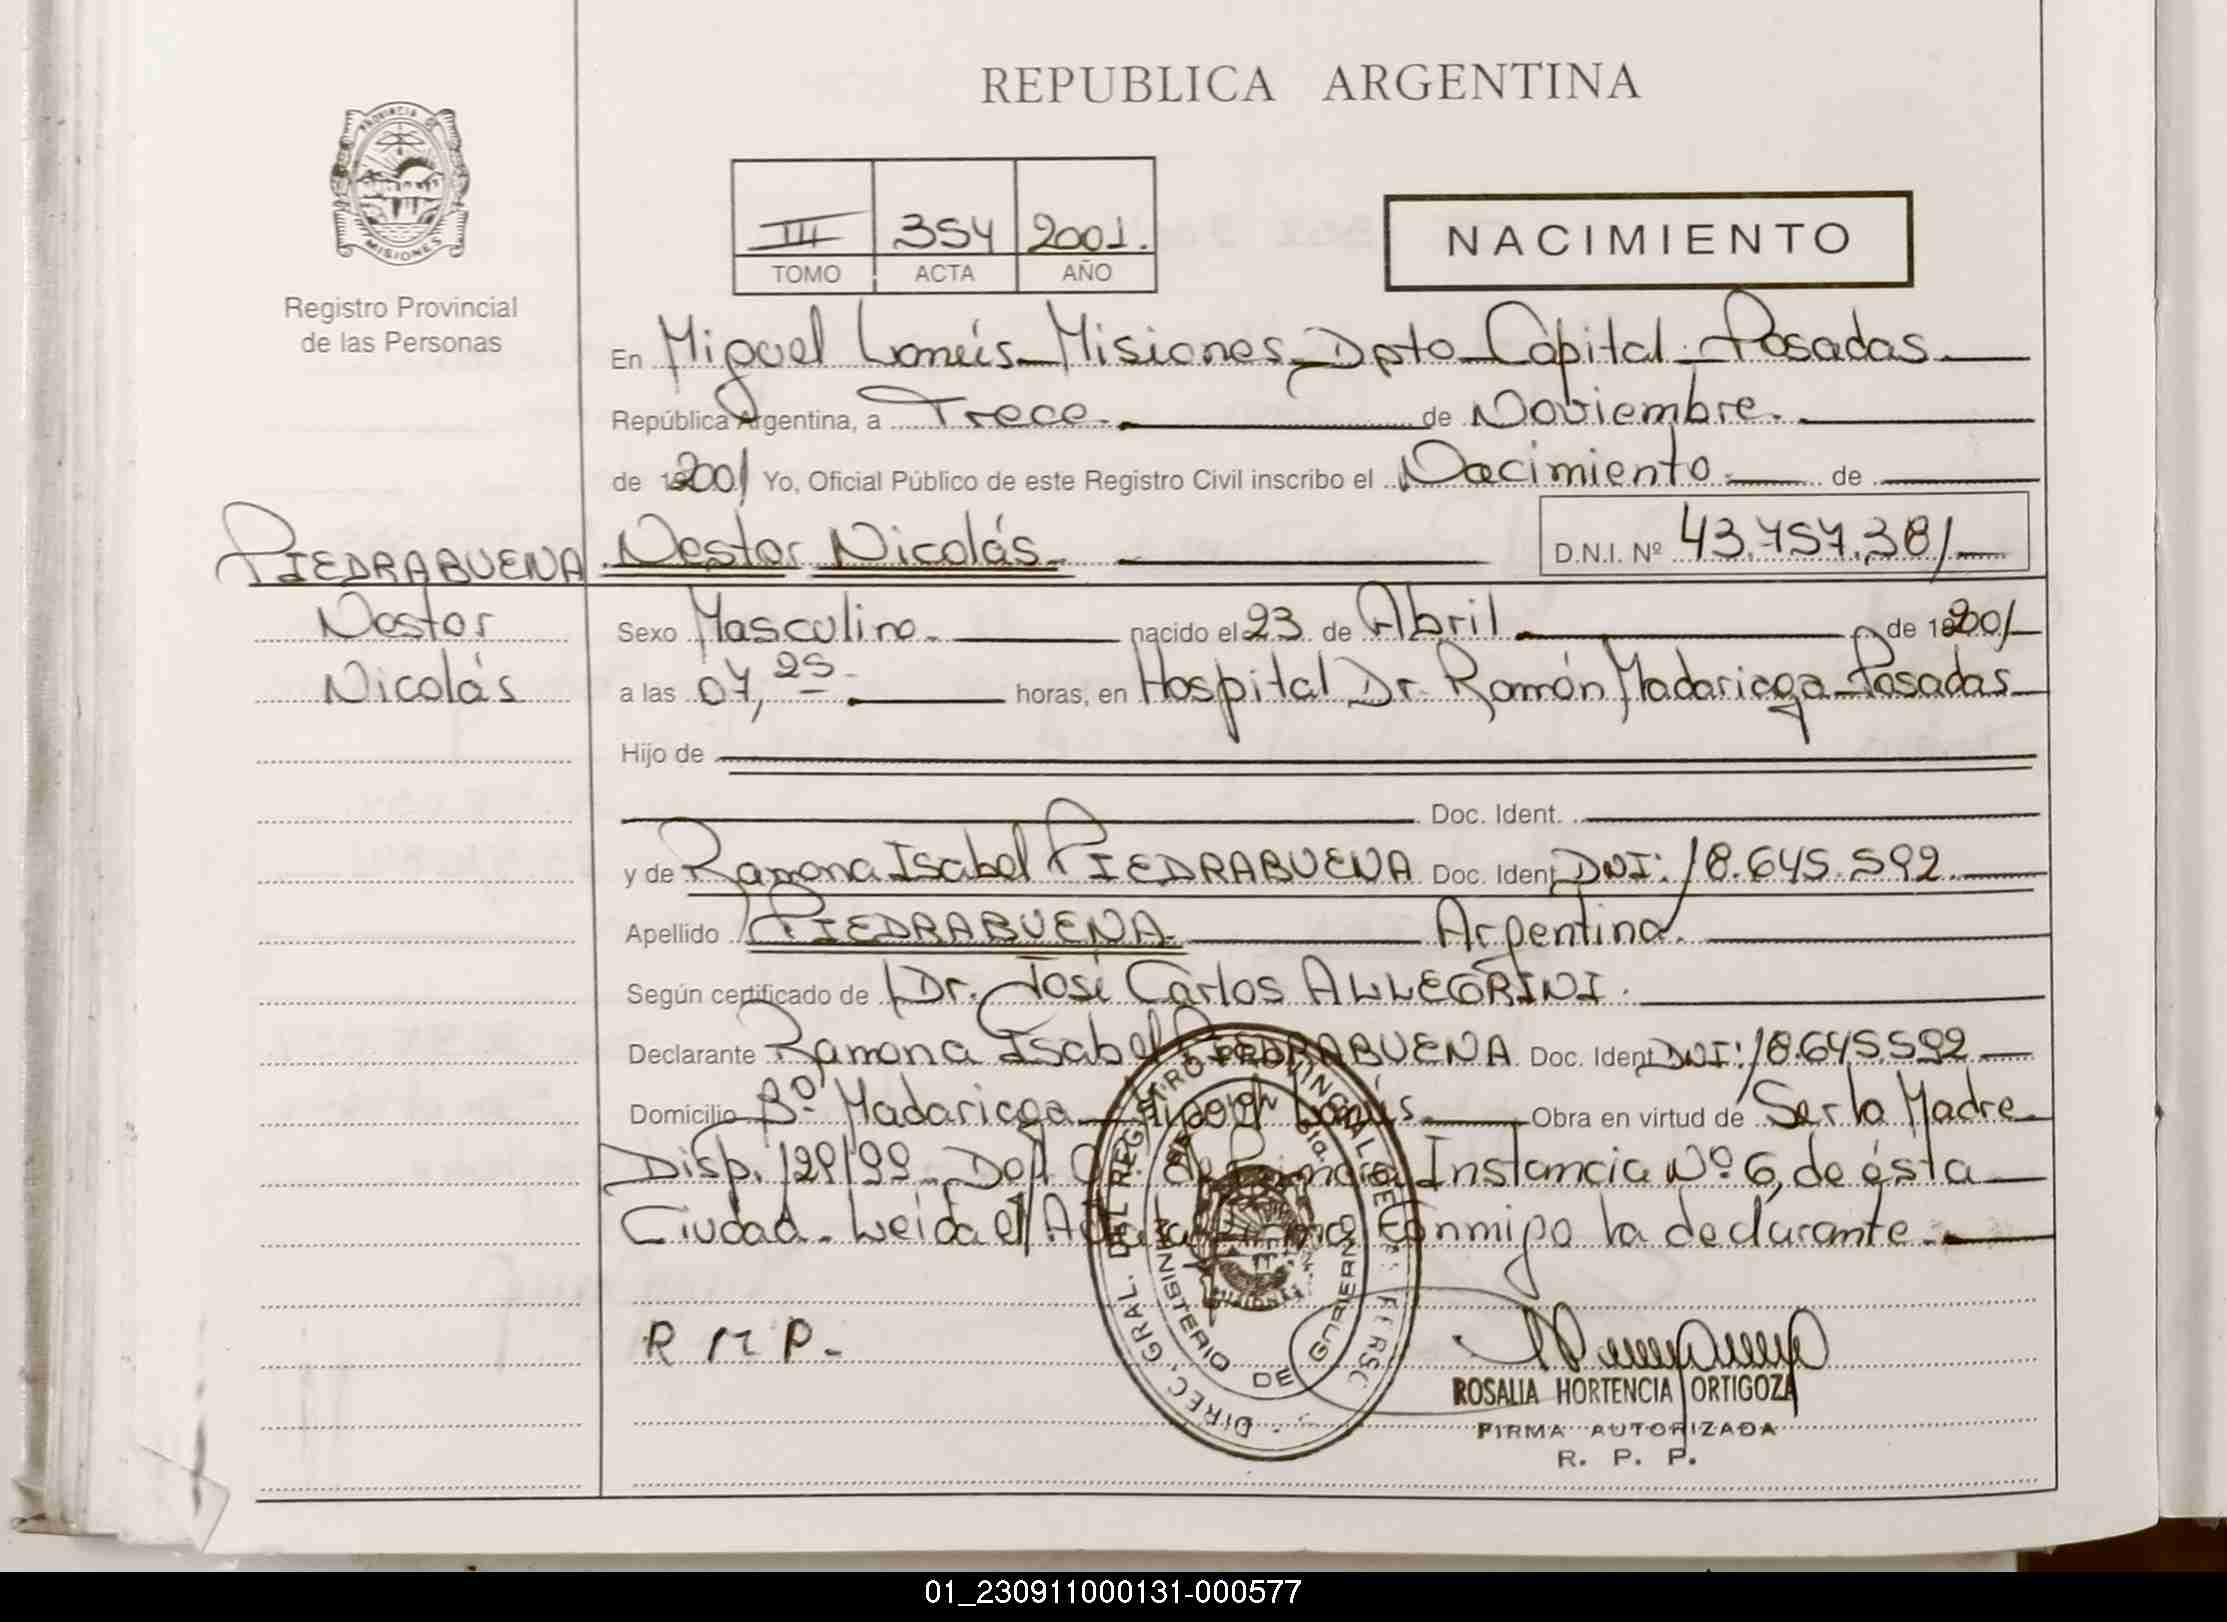 REPUBLICA ARGENTINA
PROVINCIA DE
MISIONES
Registro Provincial
de las Personas
III 354 2001.
TOMO ACTA AÑO
NACIMIENTO
En Miguel Lanús Misiones, Dpto Capital Posadas
República Argentina, a Trece. de Noviembre.
de 2001 Yo, Oficial Público de este Registro Civil inscribo el Nacimiento de
PIEDRABUENA Nestor Nicolás D.N.I. Nº 43.757.381
Nestor
Nicolás
Sexo Masculino. nacido el 23 de Abril de 2001
a las 07,25 horas, en Hospital Dr. Ramón Madariaga Posadas
Hijo de
Doc. Ident.
y de Ramona Isabel PIEDRABUENA Doc. Ident DNI: 18.645.592
Apellido PIEDRABUENA Argentina.
Según certificado de Dr. José Carlos ALLEGRINI.
Declarante Ramona Isabel PIEDRABUENA Doc. Ident DNI: 18.645.592
Domicilio Bº Madariaga Miguel Lanús Obra en virtud de Ser la Madre
Disp. 129/99 Primera Instancia Nº 6, de ésta
Ciudad. Leida el Acta la firma conmigo la declarante.
R M P.
DIREC. GRAL. DEL REGISTRO PROVINCIAL DE
MINISTERIO DE GOBIERNO
MISIONES
ROSALIA HORTENCIA ORTIGOZA
FIRMA AUTORIZADA
R. P. P.
01_230911000131-000577